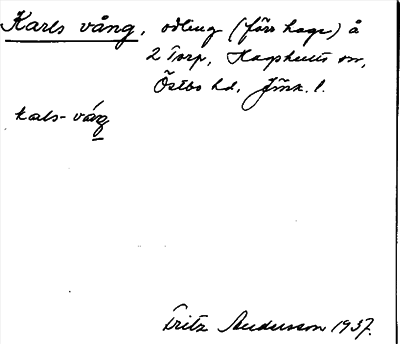 Karls vång, odling (förr hage) å
2 Torp, Hagshults sn,
Östbo hd, Jönk. l.
kals-váŋ
Fritz Andersson 1937.